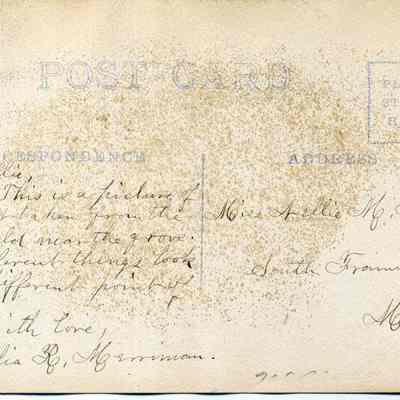 POST CARD
CORRESPONDENCE
lie,
This is a picture of
taken from the
ld near the grove.
ferent things look
ifferent points of
ith love,
lia R. Merriman.
ADDRESS
Miss Nellie M.
South Fram
M